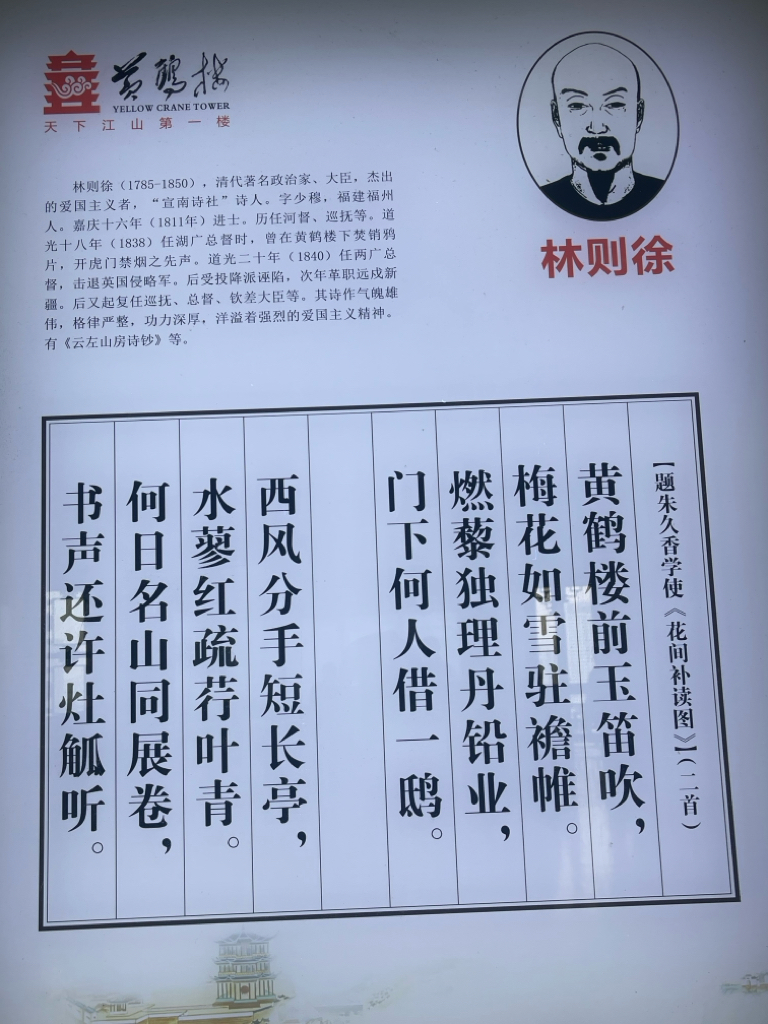 黄鹤楼
YELLOW CRANE TOWER
天下江山第一楼
林则徐
林则徐（1785-1850），清代著名政治家、大臣，杰出
的爱国主义者，“宣南诗社”诗人。字少穆，福建福州
人。嘉庆十六年（1811年）进士。历任河督、巡抚等。道
光十八年（1838）任湖广总督时，曾在黄鹤楼下焚销鸦
片，开虎门禁烟之先声。道光二十年（1840）任两广总
督，击退英国侵略军。后受投降派诬陷，次年革职远戍新
疆。后又起复任巡抚、总督、钦差大臣等。其诗作气魄雄
伟，格律严整，功力深厚，洋溢着强烈的爱国主义精神。
有《云左山房诗钞》等。
【题朱久香学使《花间补读图》】（二首）
黄鹤楼前玉笛吹，
梅花如雪驻襜帷。
燃藜独理丹铅业，
门下何人借一鸱。
西风分手短长亭，
水蓼红疏荇叶青。
何日名山同展卷，
书声还许灶觚听。